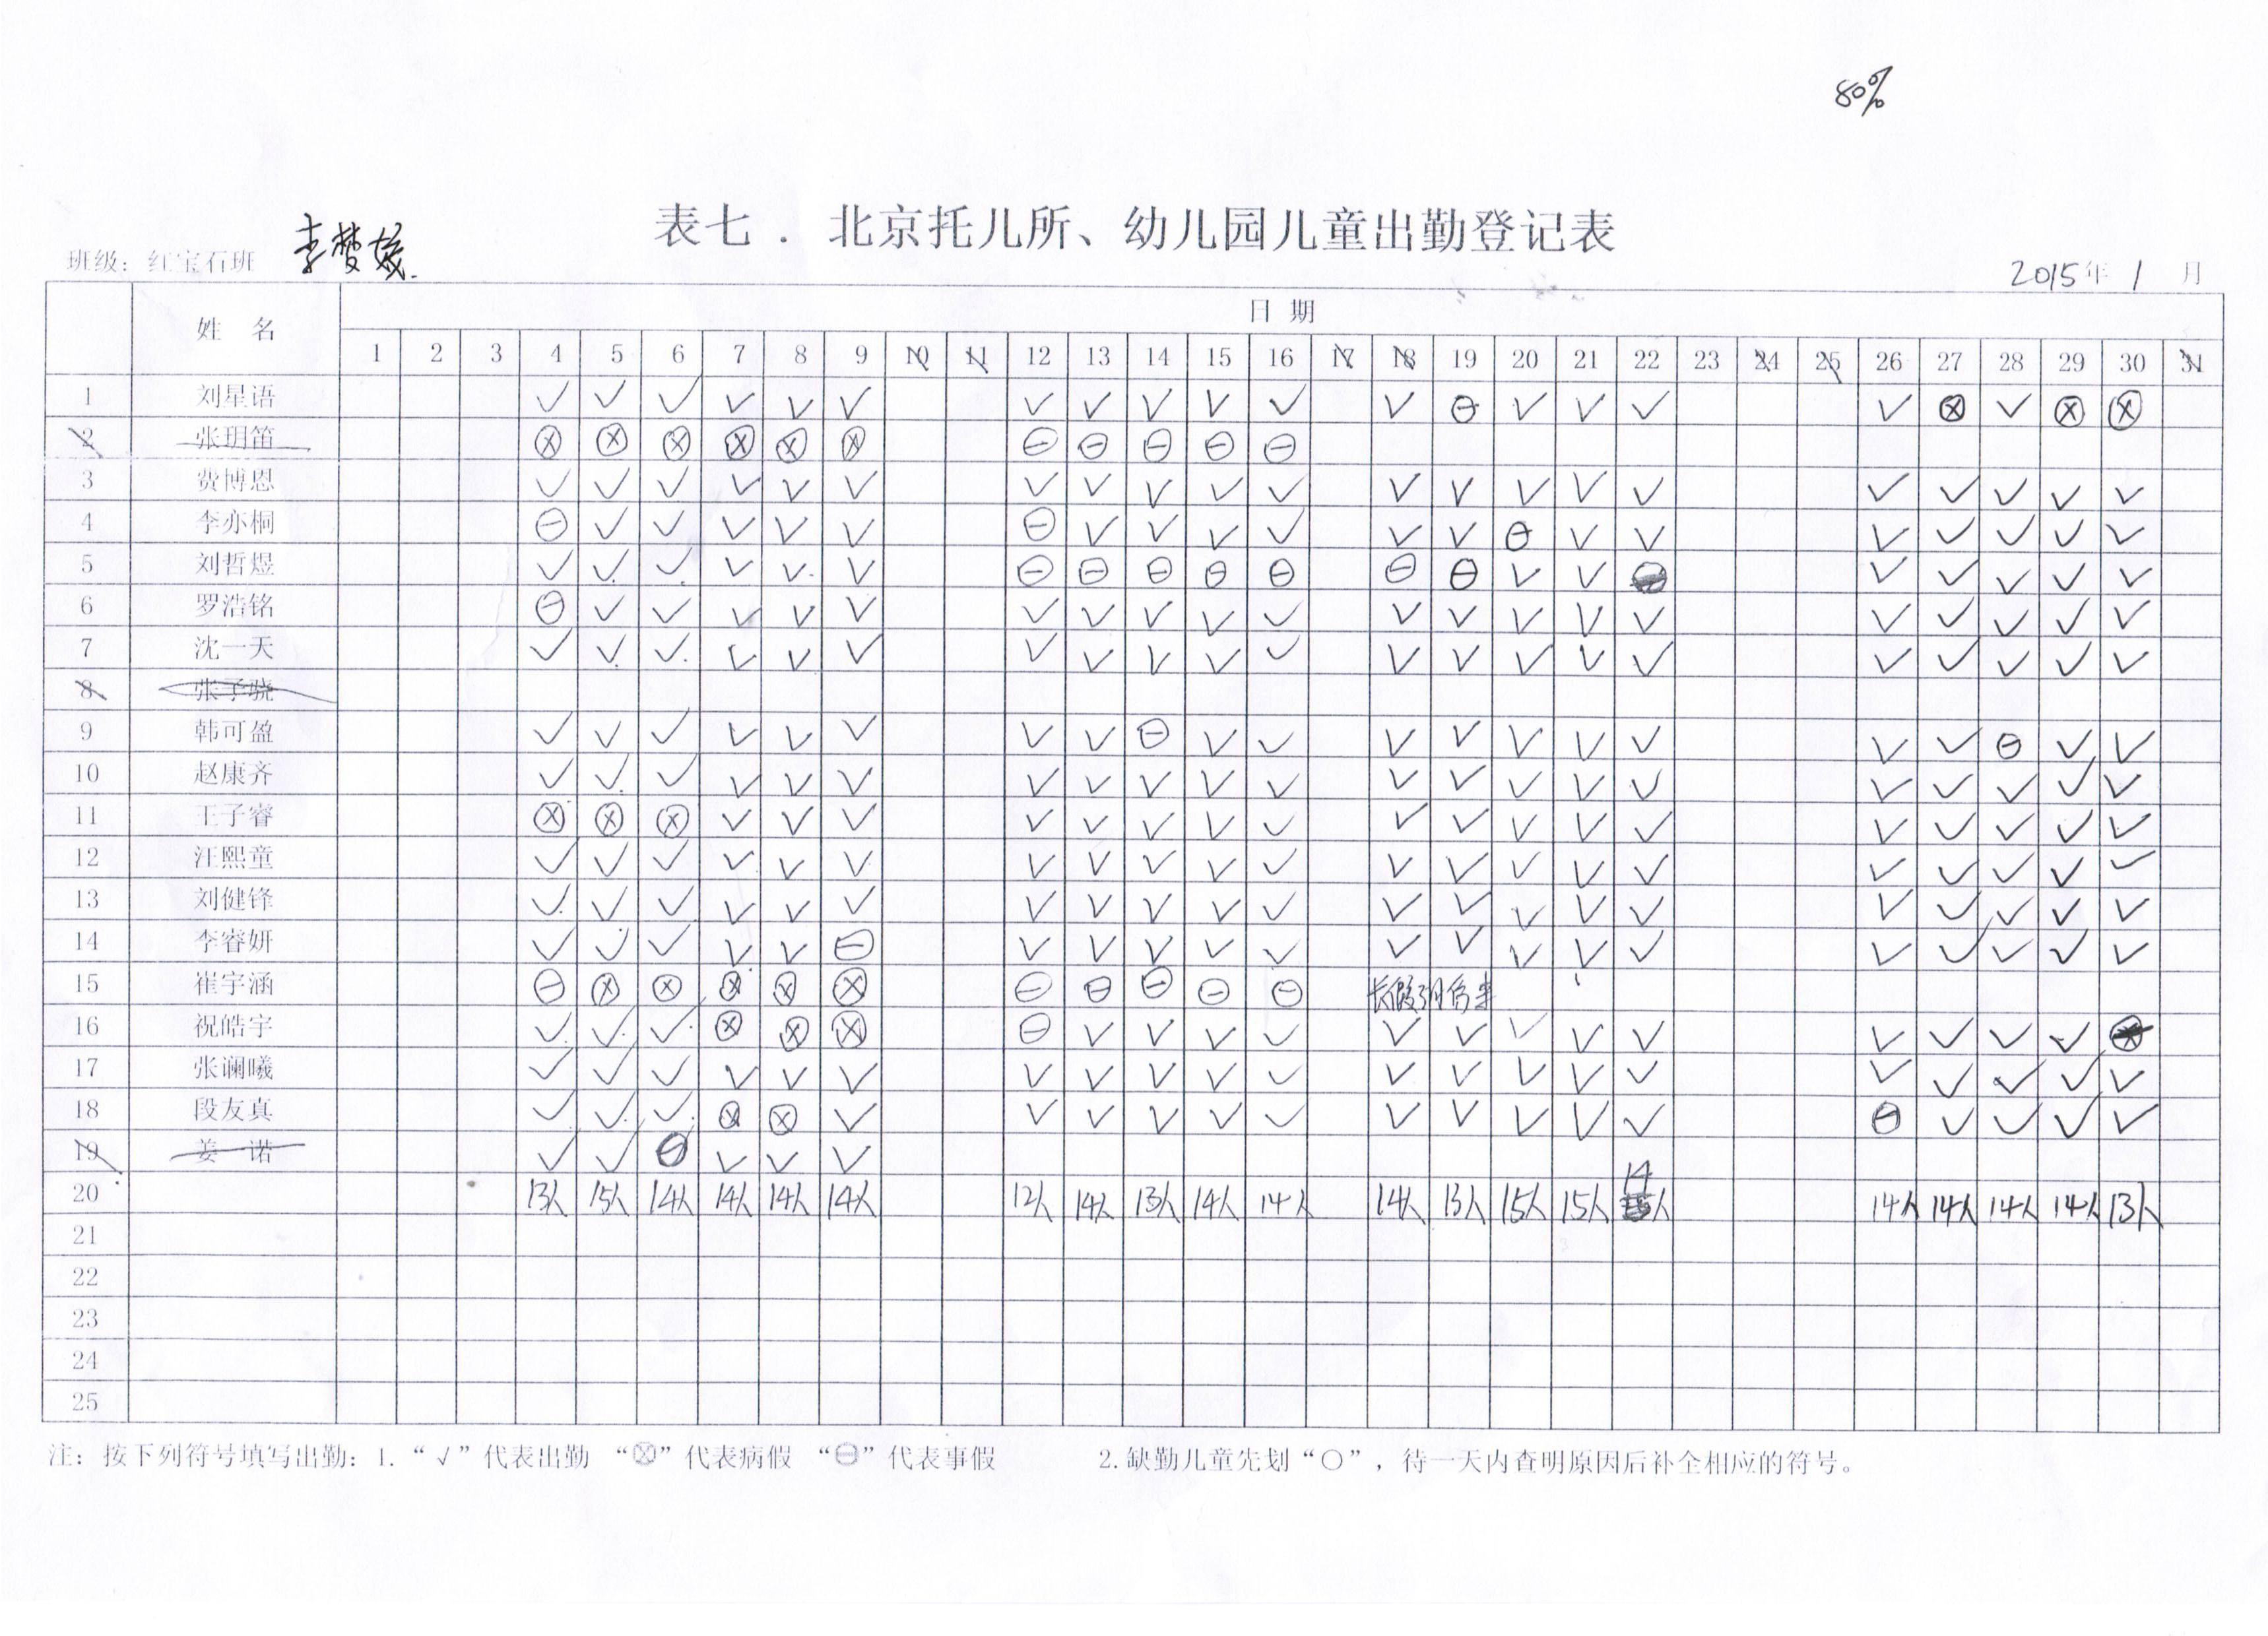 80%
表七 . 北京托儿所、幼儿园儿童出勤登记表
班级: 红宝石班 李梦媛
2015年 1 月
姓 名 日 期
1 2 3 4 5 6 7 8 9 10 11 12 13 14 15 16 17 18 19 20 21 22 23 24 25 26 27 28 29 30 31
1 刘星语 √ √ √ √ √ √ √ √ √ √ √ √ ⊖ √ √ √ √ ⊗ √ ⊗ ⊗
2 张玥笛 ⊗ ⊗ ⊗ ⊗ ⊗ ⊗ ⊖ ⊖ ⊖ ⊖ ⊖
3 费博恩 √ √ √ √ √ √ √ √ √ √ √ √ √ √ √ √ √ √ √ √ √
4 李亦桐 ⊖ √ √ √ √ √ ⊖ √ √ √ √ √ √ ⊖ √ √ √ √ √ √ √
5 刘哲煜 √ √ √ √ √ √ ⊖ ⊖ ⊖ ⊖ ⊖ ⊖ ⊖ √ √ ⊖ √ √ √ √ √
6 罗浩铭 ⊖ √ √ √ √ √ √ √ √ √ √ √ √ √ √ √ √ √ √ √ √
7 沈一天 √ √ √ √ √ √ √ √ √ √ √ √ √ √ √ √ √ √ √ √ √
8 张子骁
9 韩可盈 √ √ √ √ √ √ √ √ ⊖ √ √ √ √ √ √ √ √ √ ⊖ √ √
10 赵康齐 √ √ √ √ √ √ √ √ √ √ √ √ √ √ √ √ √ √ √ √ √
11 王子睿 ⊗ ⊗ ⊗ √ √ √ √ √ √ √ √ √ √ √ √ √ √ √ √ √ √
12 汪熙童 √ √ √ √ √ √ √ √ √ √ √ √ √ √ √ √ √ √ √ √ √
13 刘健锋 √ √ √ √ √ √ √ √ √ √ √ √ √ √ √ √ √ √ √ √ √
14 李睿妍 √ √ √ √ √ ⊖ √ √ √ √ √ √ √ √ √ √ √ √ √ √ √
15 崔宇涵 ⊖ ⊗ ⊗ ⊗ ⊗ ⊗ ⊖ ⊖ ⊖ ⊖ ⊖ 长假3月份来
16 祝皓宇 √ √ √ ⊗ ⊗ ⊗ ⊖ √ √ √ √ √ √ √ √ √ √ √ √ √ ⊗
17 张谰曦 √ √ √ √ √ √ √ √ √ √ √ √ √ √ √ √ √ √ √ √ √
18 段友真 √ √ √ ⊗ ⊗ √ √ √ √ √ √ √ √ √ √ √ ⊖ √ √ √ √
19 姜 诺 √ √ ⊖ √ √ √
20 13人 15人 14人 14人 14人 14人 12人 14人 13人 14人 14人 14人 13人 15人 15人 14人 14人 14人 14人 14人 13人
21
22
23
24
25
注: 按下列符号填写出勤: 1. “√”代表出勤 “⊗”代表病假 “⊖”代表事假 2.缺勤儿童先划“○”, 待一天内查明原因后补全相应的符号。